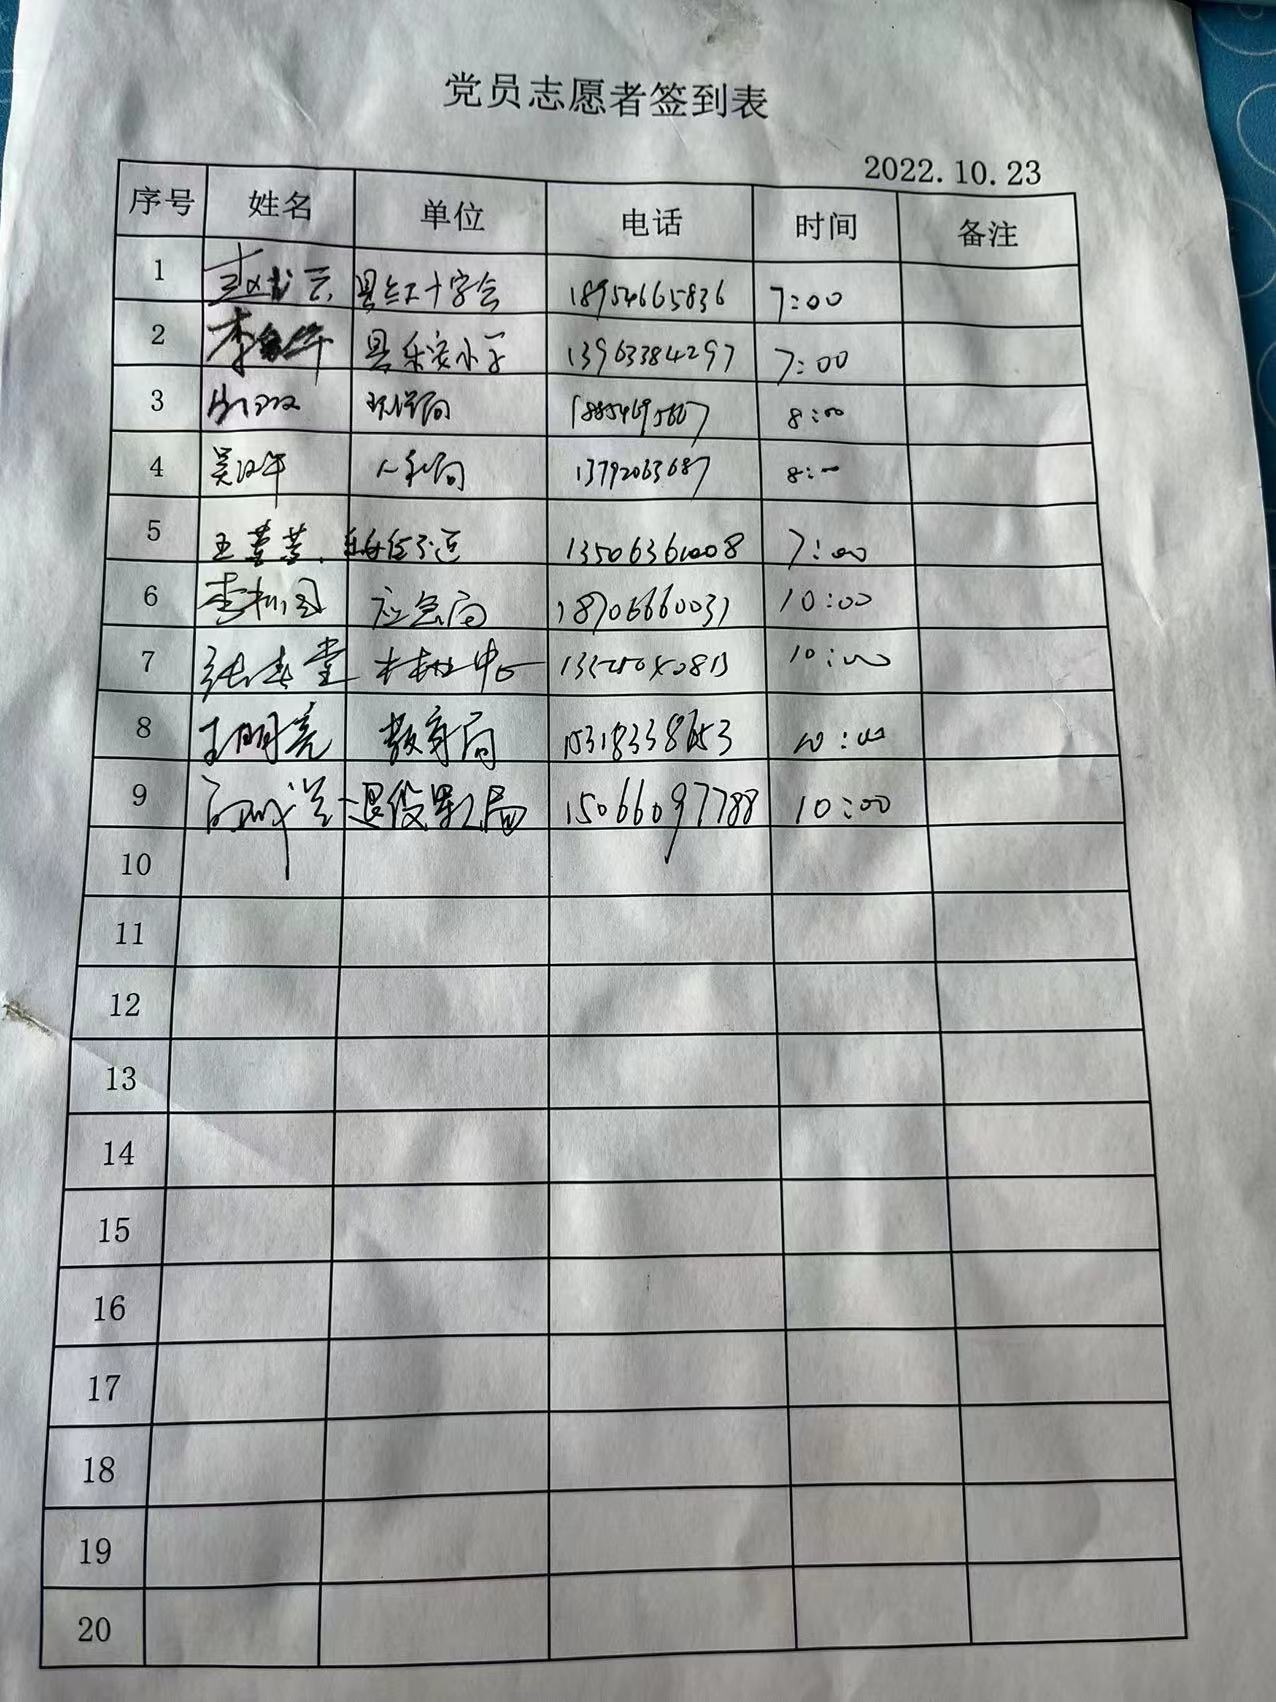 党员志愿者签到表
2022.10.23
序号 姓名 单位 电话 时间 备注
1 赵书云 县红十字会 18954665836 7:00
2 李 县乐安小学 13963384297 7:00
3 环保局 18854695667 8:00
4 吴 局 13792063687 8:00
5 王萱萱 13506361008 7:00
6 李 应急局 18706660031 10:00
7 张春堂 中心 10:00
8 王明亮 教育局 15318338653 10:00
9 退役军人局 15066097788 10:00
10
11
12
13
14
15
16
17
18
19
20